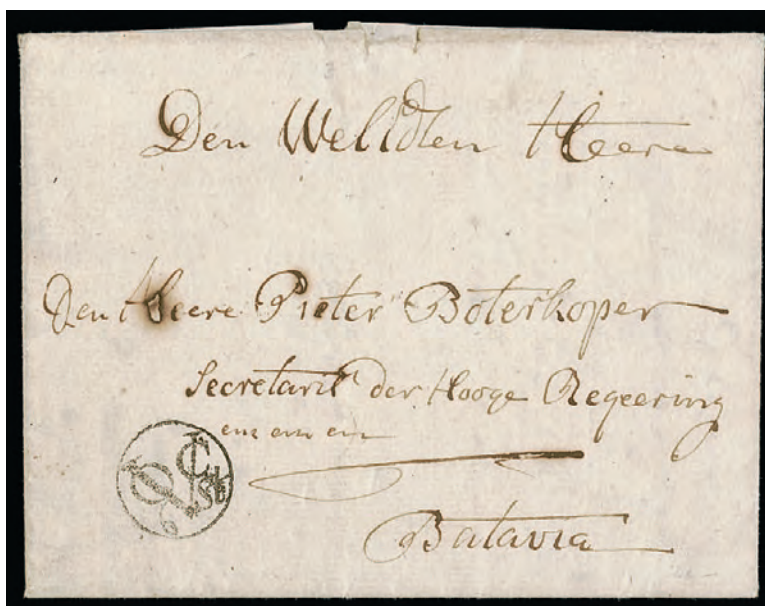 Den WelEdlen Heere
Den Heere Pieter Boterkoper
Secretaris der Hooge Regeering
enz enz enz
Batavia
VOC
6 St